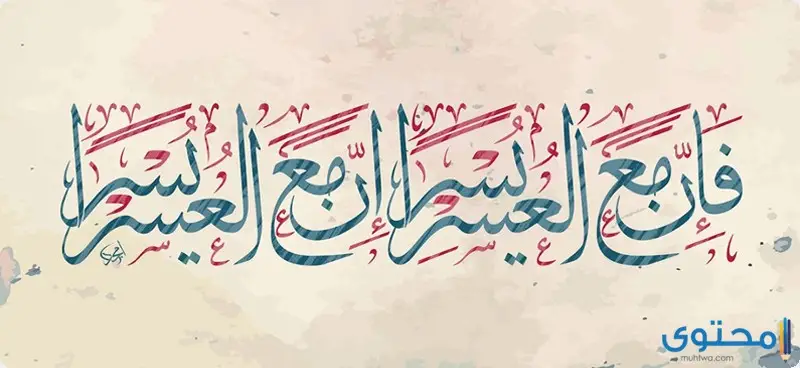 فَإِنَّ مَعَ الْعُسْرِ يُسْرًا إِنَّ مَعَ الْعُسْرِ يُسْرًا
محتوى
muhtwa.com